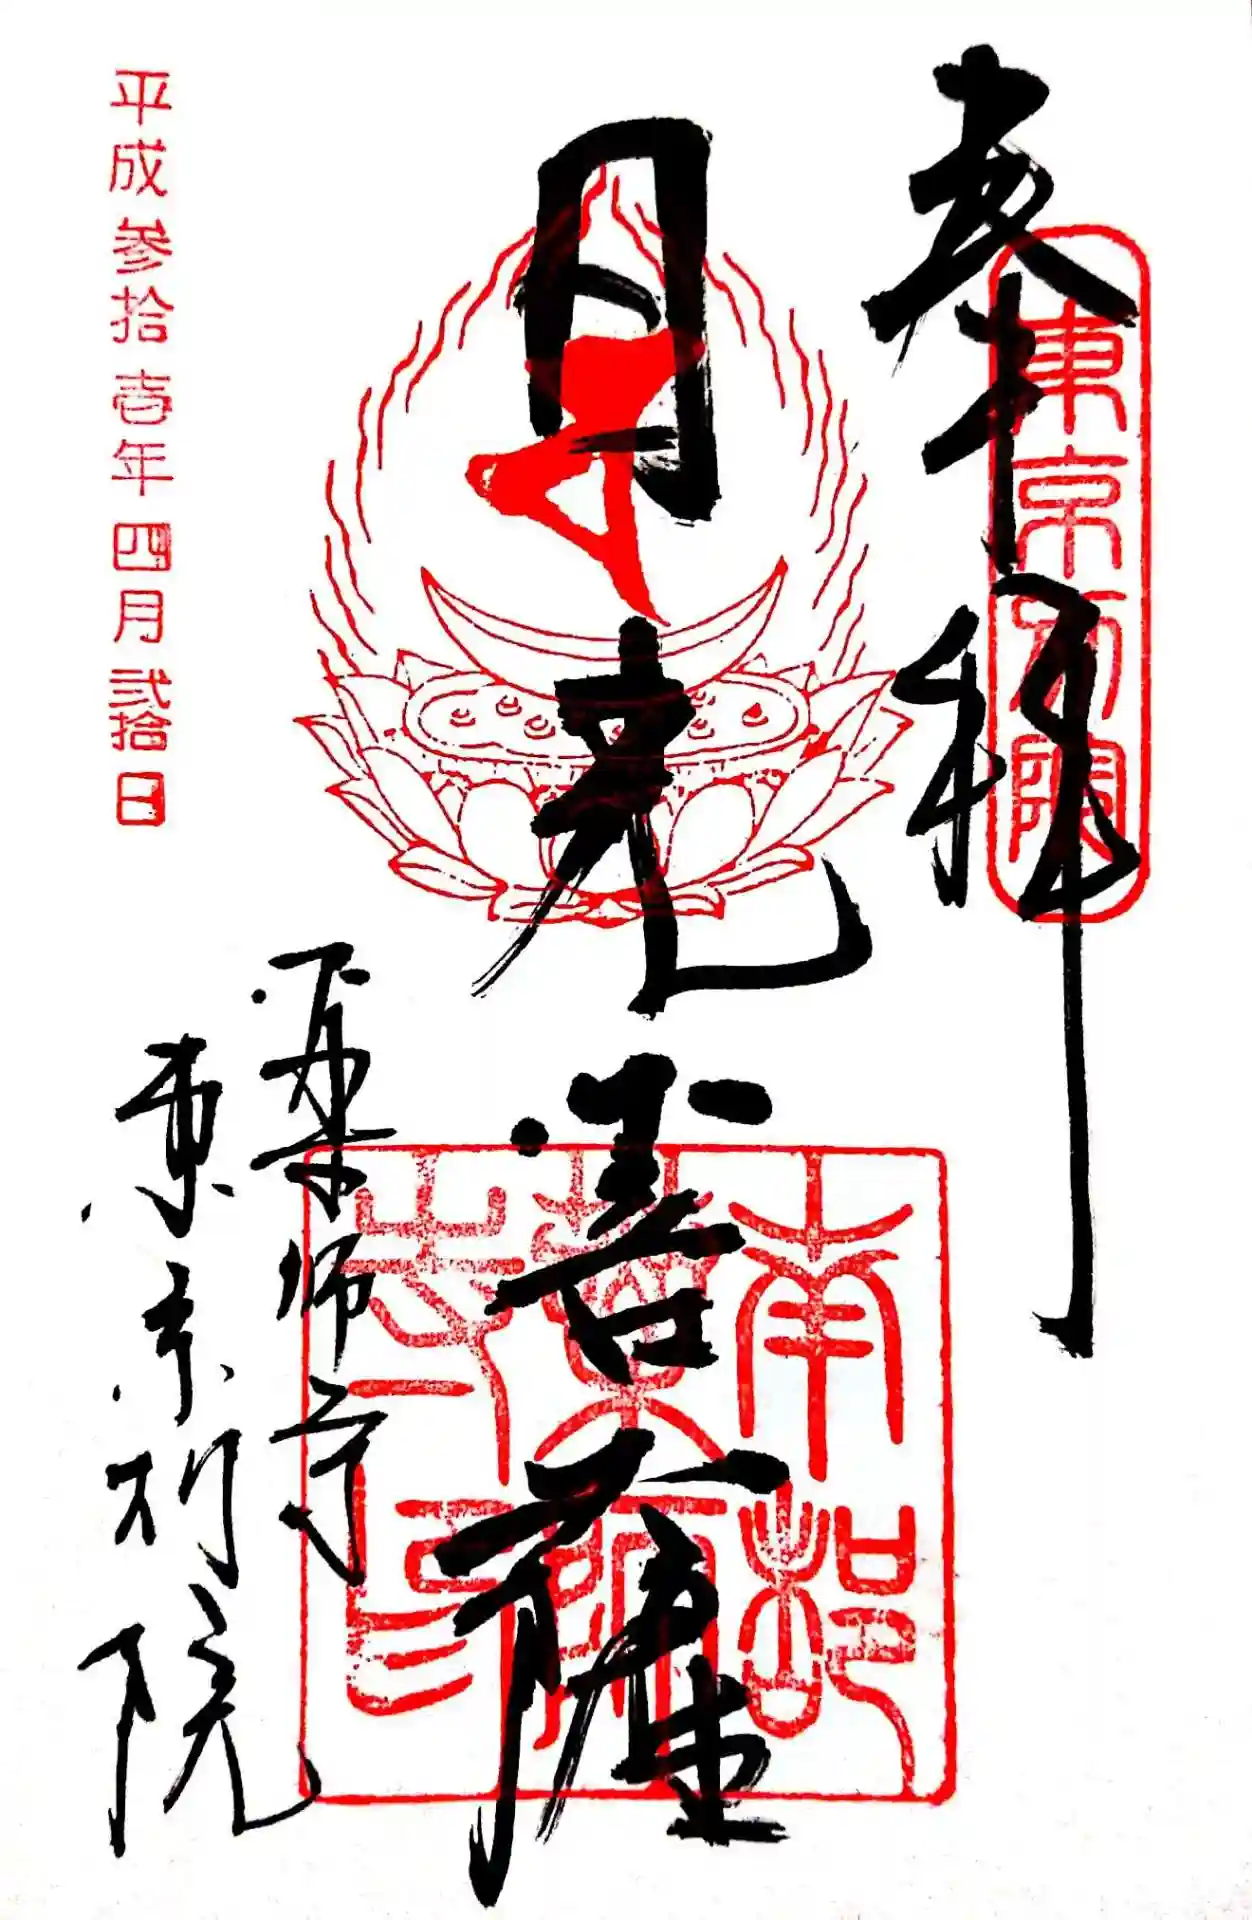 奉拝
東京別院
月光菩薩
南都
薬師
寺印
薬師寺
東京別院
平成参拾壱年四月弐拾日